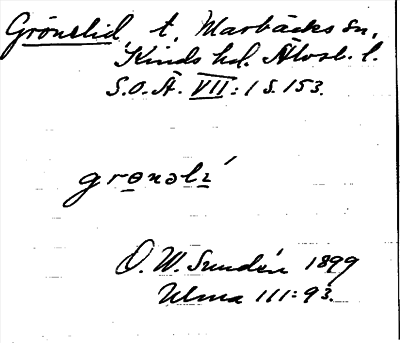 Grönelid, t, Marbäcks sn,
Kinds hd. Älvsb. l.
S.O.Ä. VII:1 s. 153.
grɵnəlɩ́
O. W. Sundén 1899
Ulma 111:93.